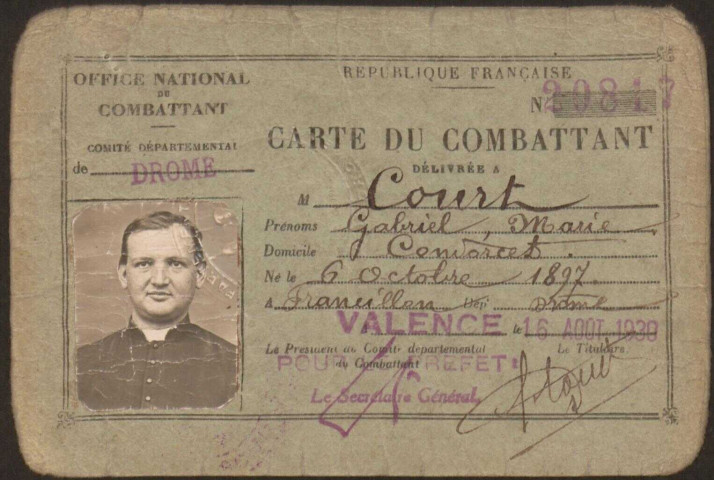 OFFICE NATIONAL
DU
COMBATTANT
COMITÉ DÉPARTEMENTAL
de DROME
RÉPUBLIQUE FRANÇAISE
N° 20817
CARTE DU COMBATTANT
DÉLIVRÉE A
M Court
Prénoms Gabriel, Marie
Domicile Condorcet.
Né le 6 Octobre 1897
A Francillon Dépt Drome
VALENCE le 16 AOUT 1930
Le Président du Comité départemental
du Combattant
Le Titulaire
POUR LE PREFET:
Le Secrétaire Général,